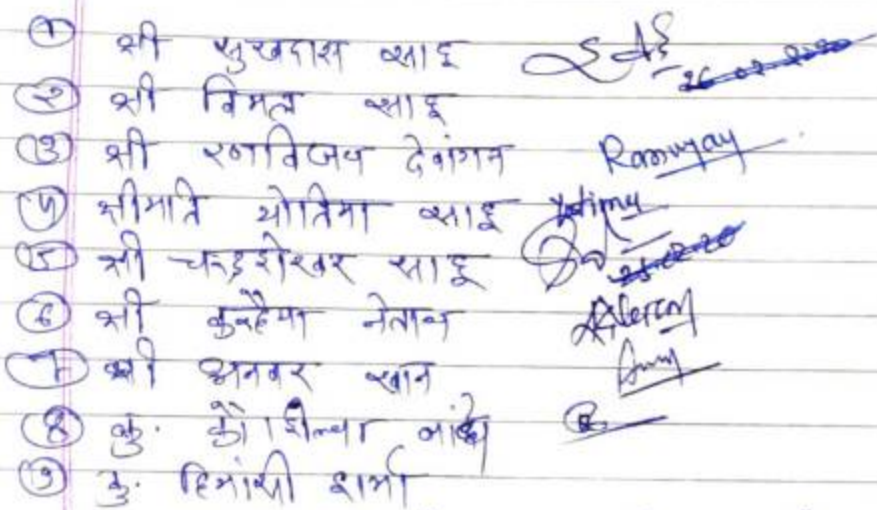 ① श्री सुखदास साहू
② श्री विमल साहू
③ श्री रणविजय देवांगन Ranvijay
४ श्रीमति योतिमा साहू Yotima
⑤ श्री चन्द्रशेखर साहू
⑥ श्री कुन्हैया नेताम
7 श्री अनवर खान
⑧ कु. कौशिल्या
⑨ कु. हिमांसी शर्मा